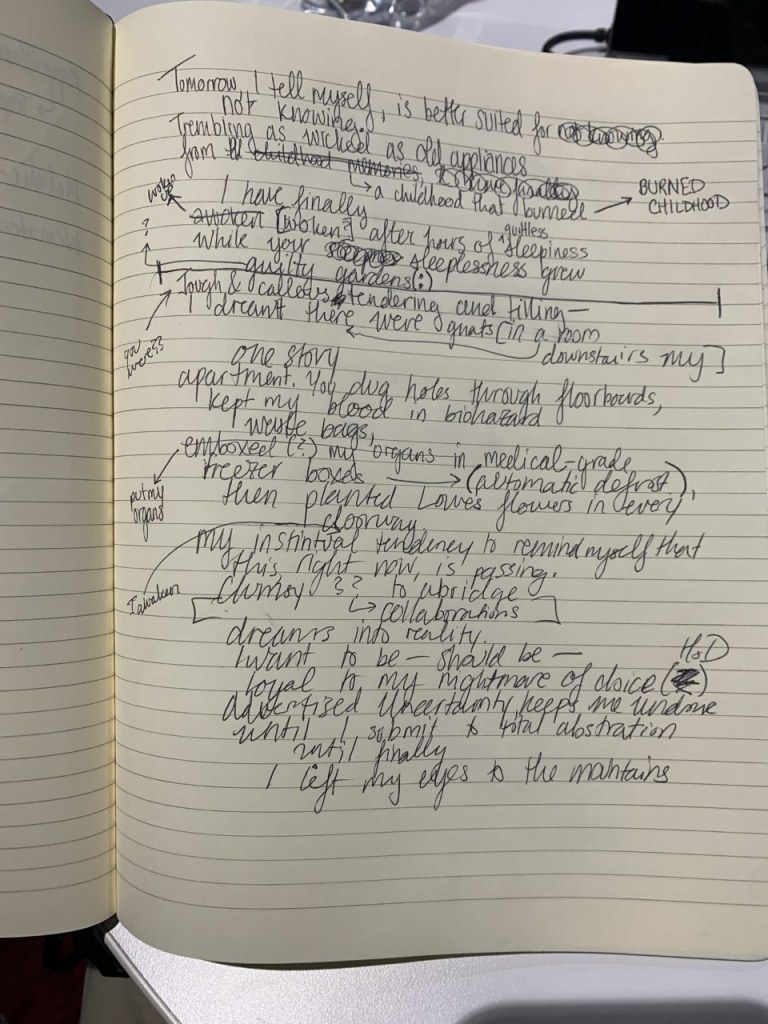 Tomorrow, I tell myself, is better suited for
not knowing.
Trembling as wicked as old appliances
from childhood memories,
↳ a childhood that burned → BURNED CHILDHOOD
I have finally
woken up
awoken [woken?] after hours of guiltless sleepiness
while your sleeplessness grew
?
guilty gardens(:)
Tough & callous, tendering and tilling—
I dreamt there were gnats [in a room
downstairs my]
you were??
one story
apartment. You dug holes through floorboards,
kept my blood in biohazard
waste bags,
emboxed (?) my organs in medical-grade
put my organs
freezer boxes → (automatic defrost),
then planted Lowes flowers in every
doorway.
my instintual tendency to remind myself that
this, right now, is passing.
I awaken
Clumsy ?? to abridge
↳ collaborations
dreams into reality.
I want to be — should be —
loyal to my nightmare of choice ( )
HoD
advertised Uncertainty keeps me undone
until I submit to total abstration
until finally
I left my eyes to the mantains